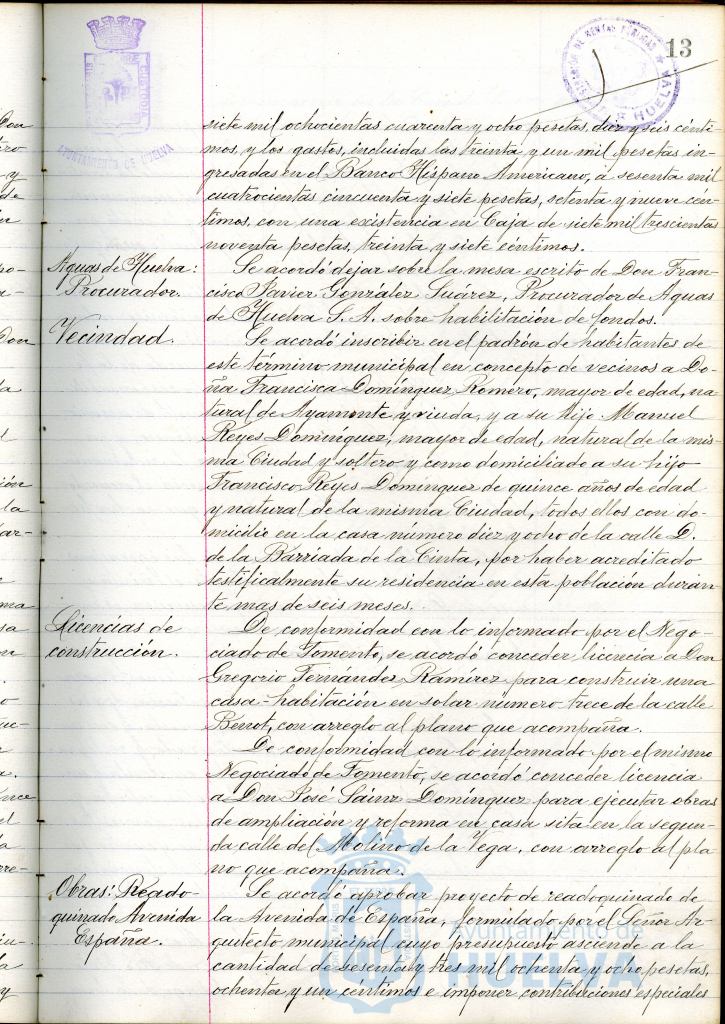 13
AYUNTAMIENTO DE HUELVA
HUELVA
siete mil ochocientas cuarenta y ocho pesetas, diez y seis cénti-
mos, y los gastos, incluidas las treinta y un mil pesetas in-
gresadas en el Banco Hispano Americano, a sesenta mil
cuatrocientas cincuenta y siete pesetas, setenta y nueve cén-
timos, con una existencia en Caja de siete mil trescientas
noventa pesetas, treinta y siete céntimos.
Aguas de Huelva:
Procurador.
Se acordó dejar sobre la mesa escrito de Don Fran-
cisco Javier González Suárez, Procurador de Aguas
de Huelva S. A. sobre habilitación de fondos.
Vecindad.
Se acordó inscribir en el padrón de habitantes de
este término municipal en concepto de vecinos a Do-
ña Francisca Domínguez Romero, mayor de edad, na-
tural de Ayamonte y viuda, y a su hijo Manuel
Reyes Domínguez, mayor de edad, natural de la mis-
ma Ciudad y soltero y como domiciliado a su hijo
Francisco Reyes Domínguez de quince años de edad
y natural de la misma Ciudad, todos ellos con do-
micilio en la casa número diez y ocho de la calle D.
de la Barriada de la Cinta, por haber acreditado
testificalmente su residencia en esta población duran-
te mas de seis meses.
Licencias de
construcción.
De conformidad con lo informado por el Nego-
ciado de Fomento, se acordó conceder licencia a Don
Gregorio Fernández Ramírez para construir una
casa-habitación en solar número trece de la calle
Benot, con arreglo al plano que acompaña.
De conformidad con lo informado por el mismo
Negociado de Fomento, se acordó conceder licencia
a Don José Sáinz Domínguez para ejecutar obras
de ampliación y reforma en casa sita en la segun-
da calle del Molino de la Vega, con arreglo al pla
no que acompaña.
Obras: Reado-
quinado Avenida
España.
Se acordó aprobar proyecto de readoquinado de
la Avenida de España, formulado por el Señor Ar-
quitecto municipal cuyo presupuesto asciende a la
cantidad de sesenta y tres mil ochenta y ocho pesetas,
ochenta y un céntimos e imponer contribuciones especiales
Ayuntamiento de
HUELVA